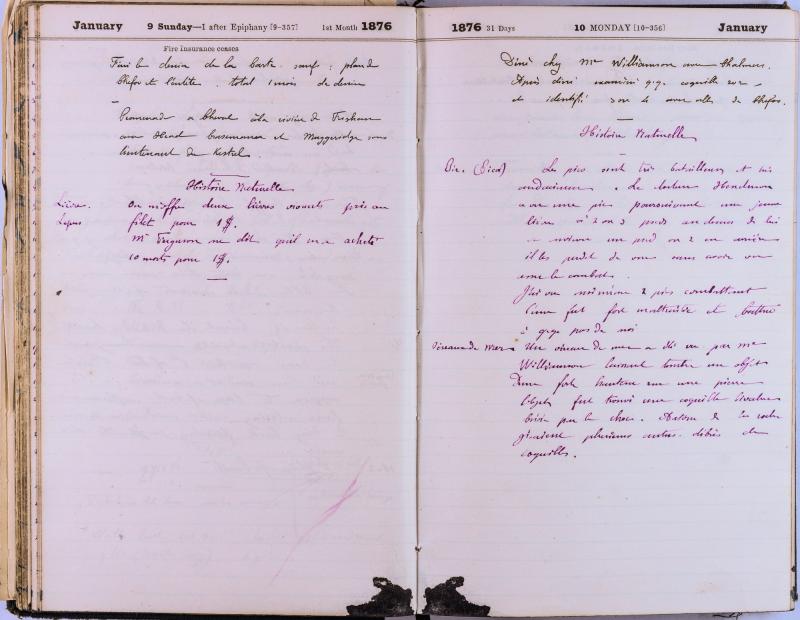 January 9 Sunday—I after Epiphany [9-357] 1st Month 1876
Fire Insurance ceases
Fini le dessin de la Carte sauf : plan de
Chefoo et l'entête. total 1 mois de dessin
Promenade a Cheval à la rivière de
avec Head Casemanea et Muggeridge sous
lieutenant du Kestrel.
Histoire Naturelle
Lièvre. On m'offre deux lièvres vivants pris au
Lepus filet pour 1$.
Mr Ferguson me dit qu'il en a acheté
10 morts pour 1$.
1876 31 Days 10 MONDAY [10-356] January
Diné chez Mr Williamson avec
Après diné examiné qq. coquilles
et identifié avec celles de Chefoo.
Histoire Naturelle
Pie. (Pica) Les pies sont très batailleurs et très
audacieuses. Le docteur Henderson
a vu une pie poursuivant un jeune
lièvre à 2 ou 3 pieds au dessus de lui
il les perdit de vue sans avoir vu
le combat.
J'ai vu moi même 2 pies combattant
l'une fut fort maltraitée et
à qq. pas de moi
Oiseaux de mer. Un oiseau de mer a été vu par Mr
Williamson laissant tomber un objet
d'une forte hauteur sur une pierre
l'objet fut trouvé une coquille bivalve
brisée par le choc. Autour de la roche
gisaient plusieurs autres débris de
coquilles.